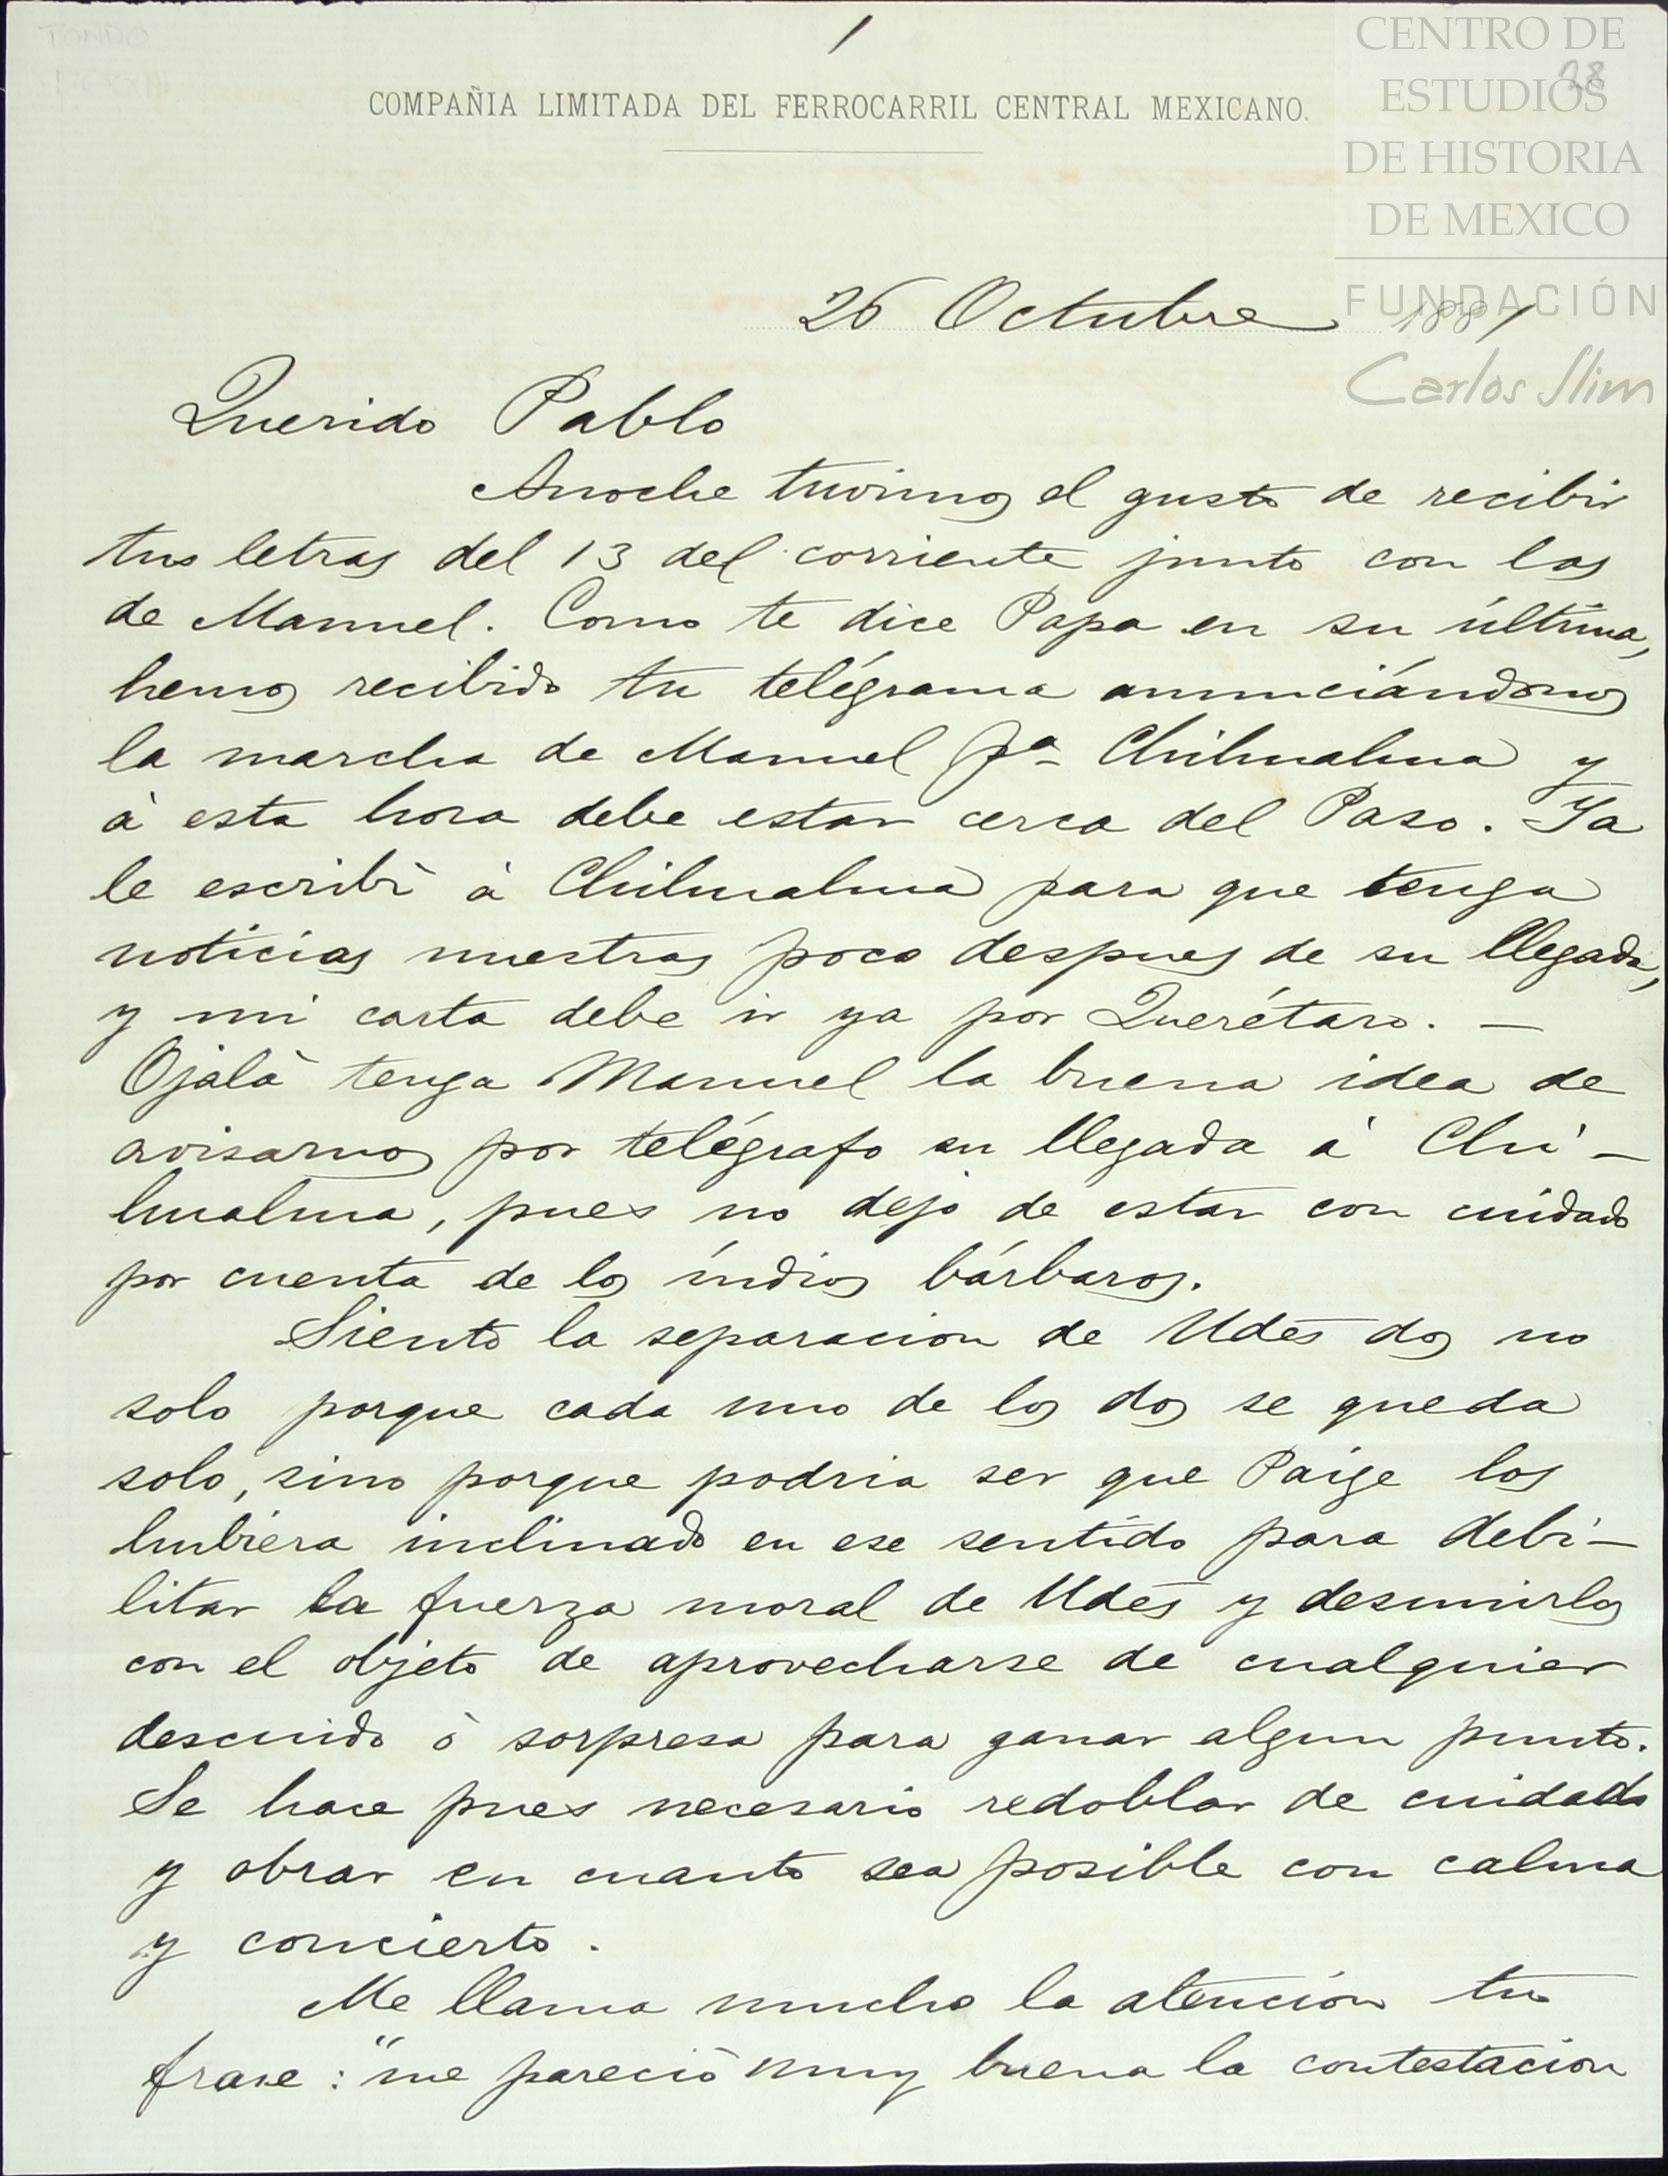 1
CENTRO DE
ESTUDIOS
DE HISTORIA
DE MEXICO
FUNDACIÓN
Carlos Slim
28
COMPAÑIA LIMITADA DEL FERROCARRIL CENTRAL MEXICANO.
26 Octubre 1881
Querido Pablo
Anoche tuvimos el gusto de recibir
tus letras del 13 del corriente junto con las
de Manuel. Como te dice Papa en su última,
hemos recibido tu telégrama anunciándonos
la marcha de Manuel pa Chihuahua y
à esta hora debe estar cerca del Paso. Ya
le escribì à Chihuahua para que tenga
noticias nuestras poco despues de su llegada,
y mi carta debe ir ya por Querétaro. —
Ojalà tenga Manuel la buena idea de
avisarnos por telégrafo su llegada á Chi-
huahua, pues no dejo de estar con cuidado
por cuenta de los índios bárbaros.
Siento la separacion de Udes dos no
solo porque cada uno de los dos se queda
solo, sino porque podria ser que Paige los
hubiera inclinado en ese sentido para debi-
litar la fuerza moral de Udes y desunirlos
con el objeto de aprovecharse de cualquier
descuido ò sorpresa para ganar algun punto.
Se hace pues necesario redoblar de cuidado
y obrar en cuanto sea posible con calma
y concierto.
Me llama mucho la atención tu
frase: "me pareciò muy buena la contestacion